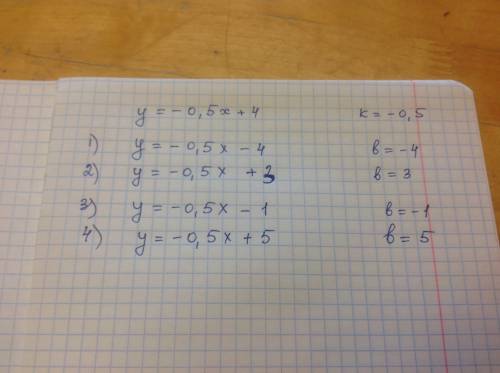 y = -0,5x + 4 k = -0,5
1) y = -0,5x - 4 b = -4
2) y = -0,5x + 3 b = 3
3) y = -0,5x - 1 b = -1
4) y = -0,5x + 5 b = 5